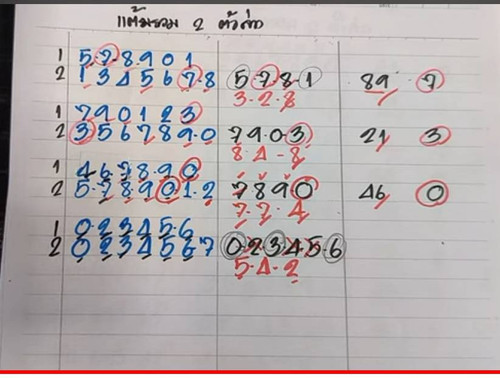 แต้มรวม 2 ตัวล่าง
1 5·7·8·9 0 1
2 1 3 4 5 6 7·8 5·7 8·1 89 7
3·2·8
1 7 9 0 1 2 3
2 3 5 6 7 8 9·0 7 9·0·3 21 3
8·4-8
1 4 6·7·8·9 0
2 5·7·8·9 0 1·2 7 8 9 0 46 0
7·7·4
1 0·2 3 4 5·6
2 0 2 3 4 5 6 7 0·2 3 4·5·6
5·4-2